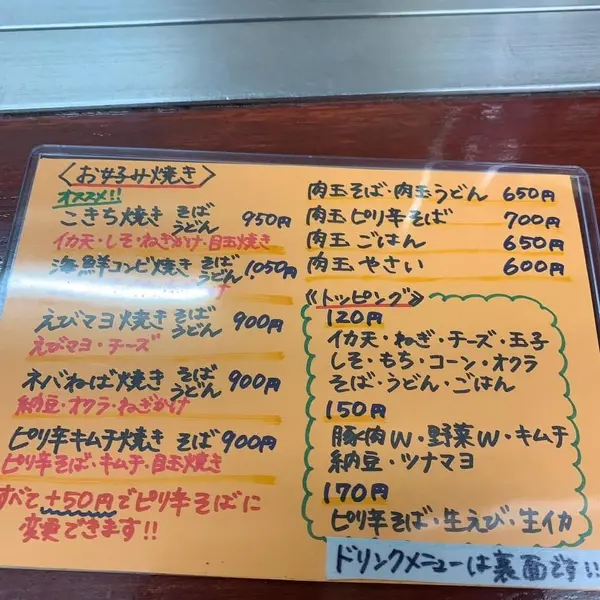 〈お好み焼き〉
オススメ!!
こきち焼き そば うどん 950円
イカ天・しそ・ねぎかけ・目玉焼き
海鮮コンビ焼き そば うどん 1050円
えびマヨ焼き そば うどん 900円
えびマヨ・チーズ
ネバねば焼き そば うどん 900円
納豆・オクラ・ねぎかけ
ピリ辛キムチ焼き そば 900円
ピリ辛そば・キムチ・目玉焼き
すべて+50円でピリ辛そばに
変更できます!!
肉玉そば・肉玉うどん 650円
肉玉ピリ辛そば 700円
肉玉ごはん 650円
肉玉やさい 600円
《トッピング》
120円
イカ天・ねぎ・チーズ・玉子
しそ・もち・コーン・オクラ
そば・うどん・ごはん
150円
豚肉W・野菜W・キムチ
納豆・ツナマヨ
170円
ピリ辛そば・生えび・生イカ
ドリンクメニューは裏面です!!